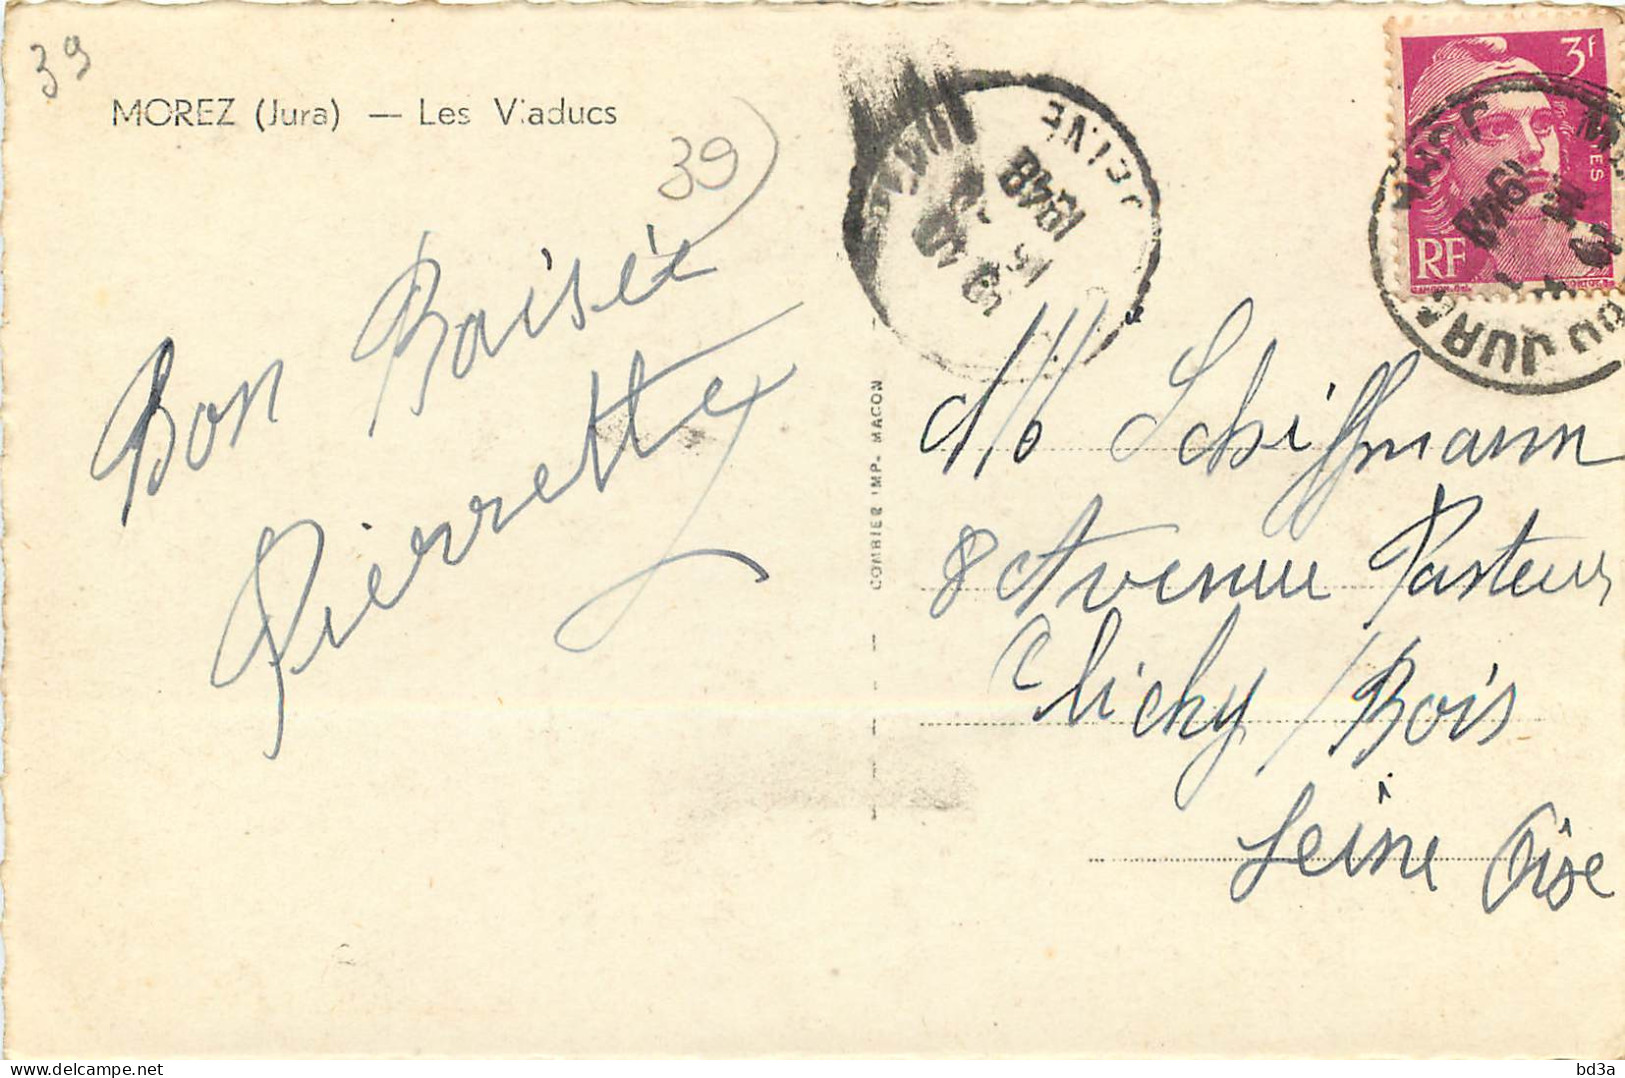 39
MOREZ (Jura) — Les Viaducs
39
Bon Baisée
Pierrette
COMBIER IMP. MACON
1948
15
3f
RF
1948
DU JURA
Schiffmann
8 Avenue Pasteur
Clichy / Bois
Seine Oise
bd3a